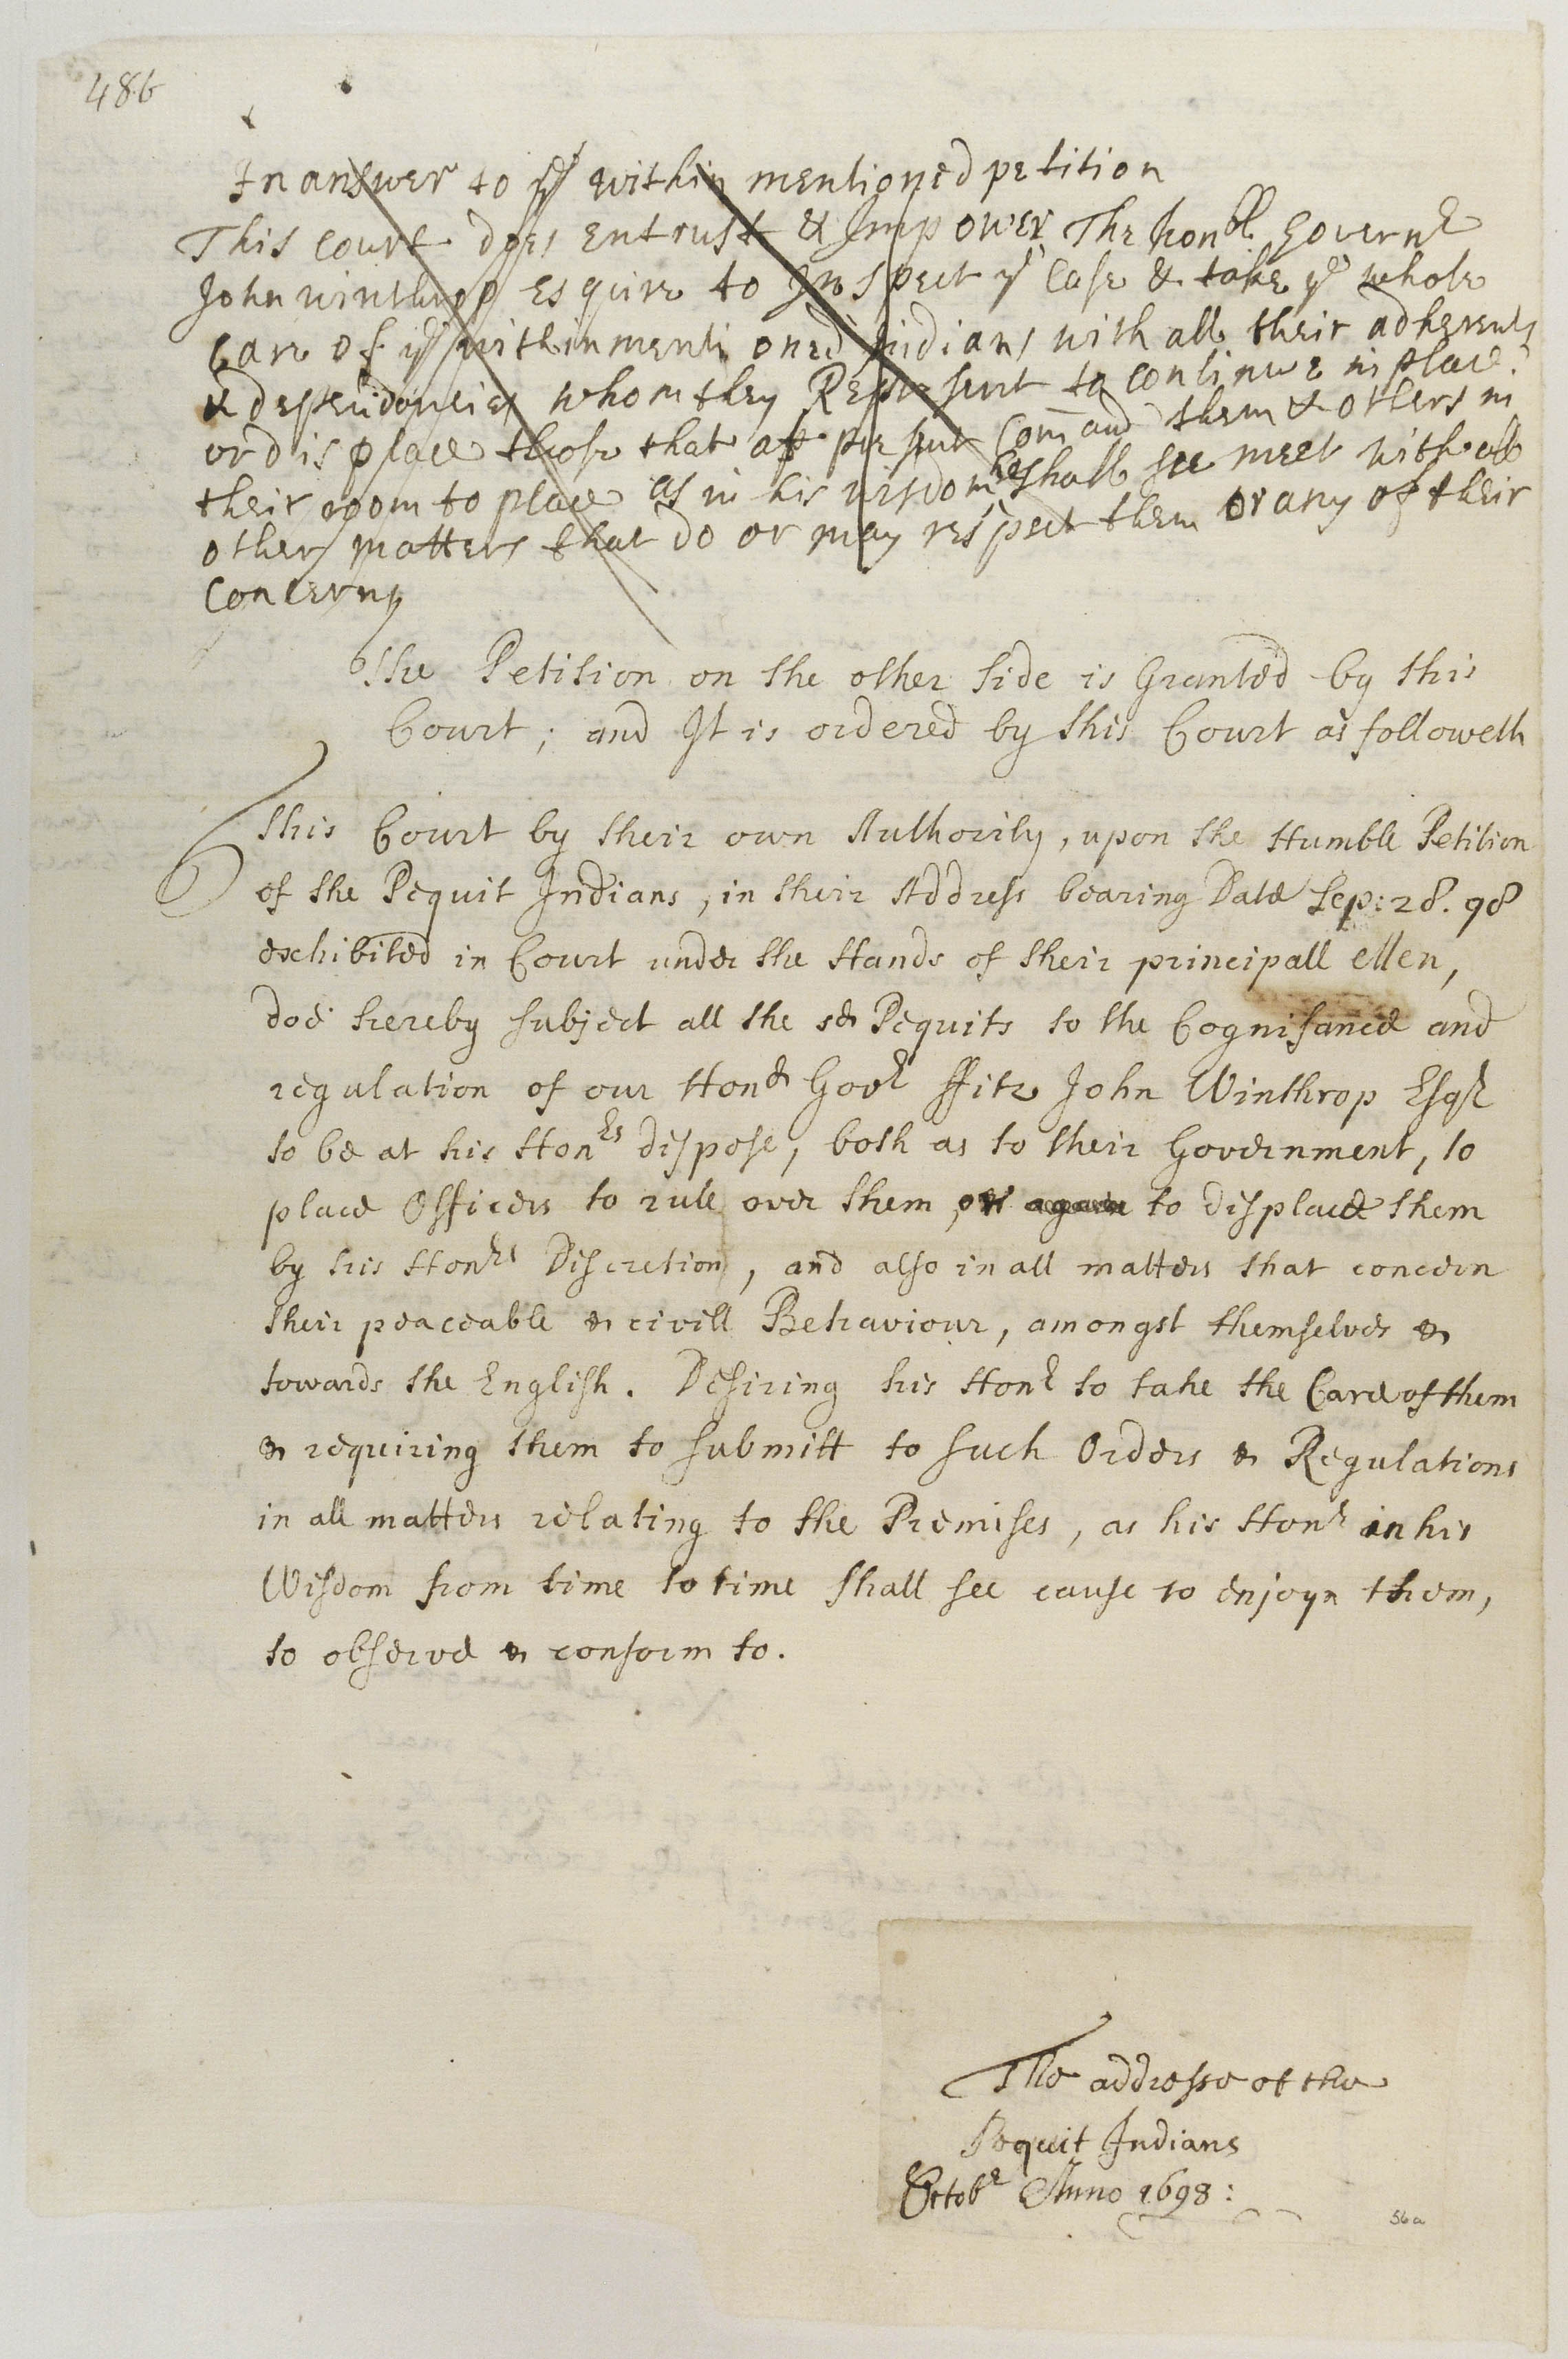 486
In answer to ye within mentioned petition
This Court does Entrust & Impower The honbl Governr
John winthrop Esquire to Inspect ye Case & take ye whole
Care of ye within mentioned Indians with all their adherents
& dependancies whom they Represent to continue in place
or displace those that att present Comand them & others in
their room to place as in his wisdom he shall see meet with all
other matters that do or may respect them or any of their
Concerns
The Petition on the other side is Granted by this
Court; and It is ordered by this Court as followeth
This Court by their own Authority, upon the Humble Petition
of the Pequit Indians, in their Address bearing Date Sep: 28. 98
exhibited in Court under the Hands of their principall Men,
doe hereby subject all the sd Pequits to the Cognisance and
regulation of our Hond Govr ffitz John Winthrop Esqr
to be at his Honrs dispose, both as to their Government, to
place Officers to rule over them, or again to displace them
by his Honrs Discretion, and also in all matters that concern
their peaceable & civill Behaviour, amongst themselves &
towards the English. Desiring his Honr to take the Care of them
& requiring them to submitt to such Orders & Regulations
in all matters relating to the Premises, as his Honr in his
Wisdom from time to time shall see cause to enjoyn them,
to observe & conform to.
The addresse of the
Pequit Indians
Octobr Anno 1698:
56a